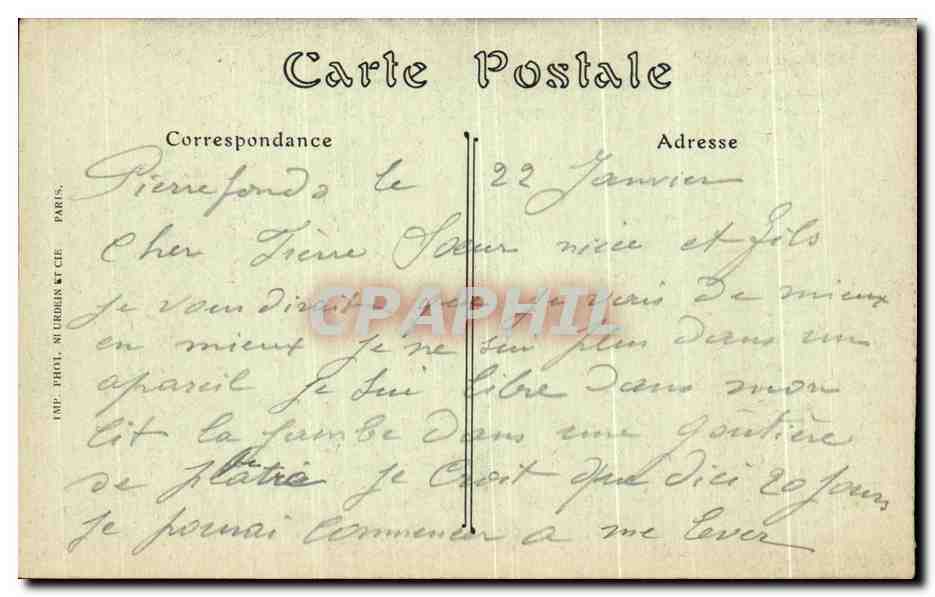 Carte Postale
Correspondance
Adresse
Pierrefonds le 22 Janvier
Cher Frère Sœur niece et fils
je vous dirait que je vais de mieux
en mieux je ne sui plus dans un
apareil je sui libre dans mon
lit la jambe dans une goutière
de platre je croit que dici 20 jours
je pourai commencer a me lever
IMP. PHOT. NEURDEIN ET CIE PARIS.
CPAPHIL